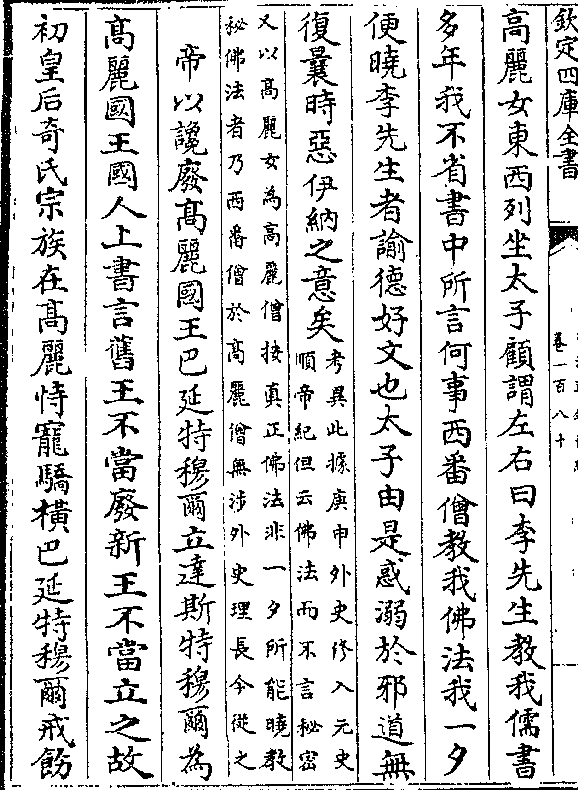 欽定四庫全書
卷一百八十
高麗女東西列坐太子顧謂左右曰李先生教我儒書
多年我不省書中所言何事西番僧教我佛法我一夕
便曉李先生者諭德好文也太子由是惑溺於邪道無
復曩時惡伊納之意矣考異此據庚申外史修入元史
順帝紀但云佛法而不言秘密
又以高麗女為高麗僧按真正佛法非一夕所能曉教
秘佛法者乃西番僧於高麗僧無涉外史理長今從之
帝以讒廢高麗國王巴延特穆爾立達斯特穆爾為
高麗國王國人上書言舊王不當廢新王不當立之故
初皇后奇氏宗族在高麗恃寵驕橫巴延特穆爾戒飭